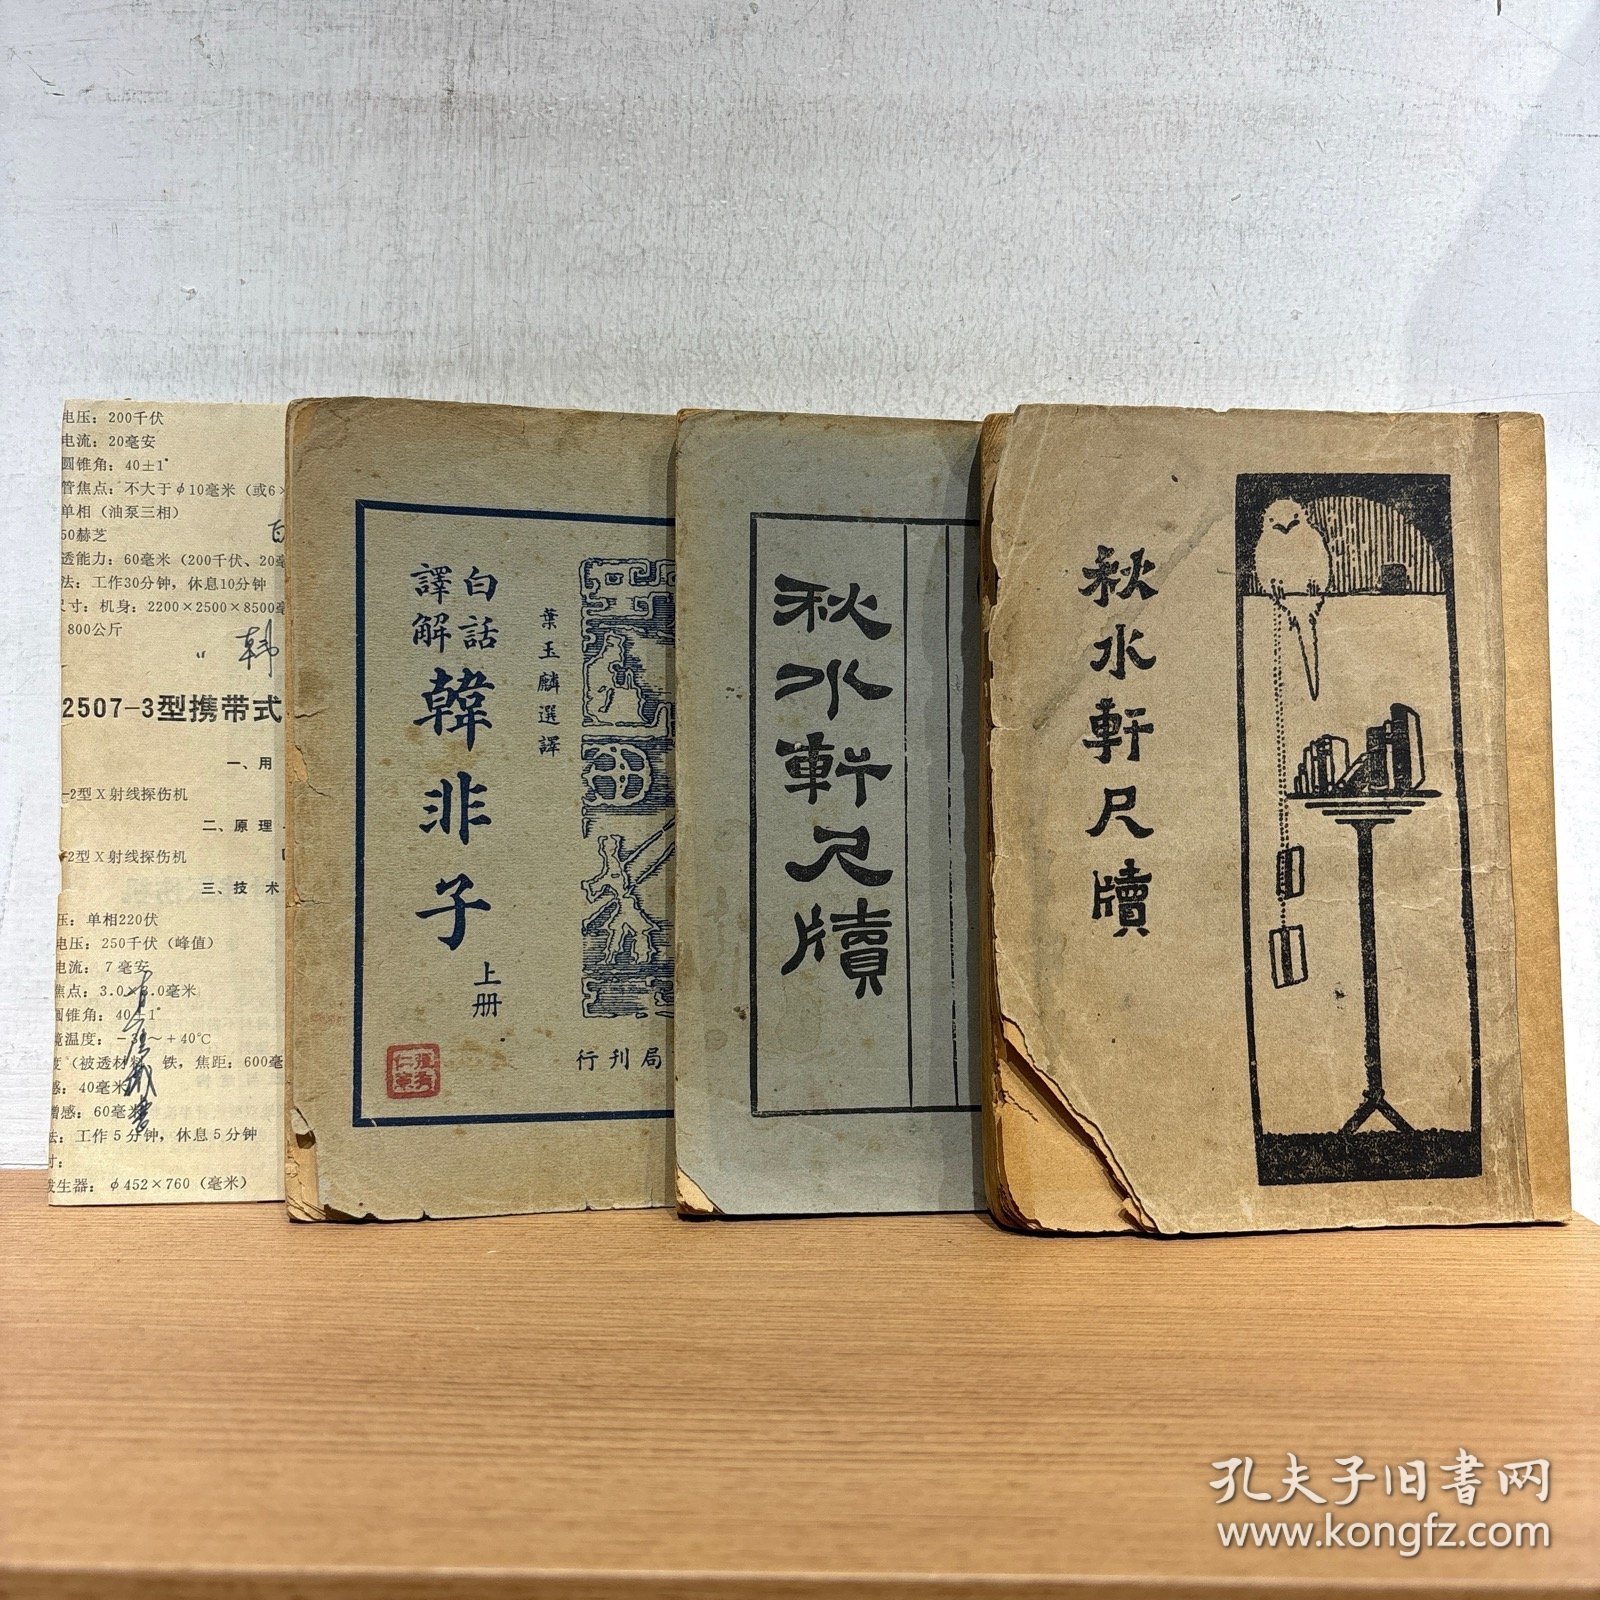 电压：200千伏
电流：20毫安
圆锥角：40±1°
管焦点：不大于φ10毫米（或6×
单相（油泵三相）
50赫芝
透能力：60毫米（200千伏、20毫
法：工作30分钟，休息10分钟
尺寸：机身：2200×2500×8500毫
800公斤
“韩
2507-3型携带式
一、用
-2型X射线探伤机
二、原理
-2型X射线探伤机
三、技术
压：单相220伏
电压：250千伏（峰值）
电流：7毫安
焦点：3.0×3.0毫米
圆锥角：40±1°
境温度：-30～+40℃
度（被透材料 铁，焦距：600毫
感：40毫米
增感：60毫米
法：工作5分钟，休息5分钟
寸：
发生器：φ452×760（毫米）
白話
譯解
韓非子
上册
葉玉麟選譯
局刊行
秋水軒尺牘
秋水軒尺牘
孔夫子旧书网
www.kongfz.com